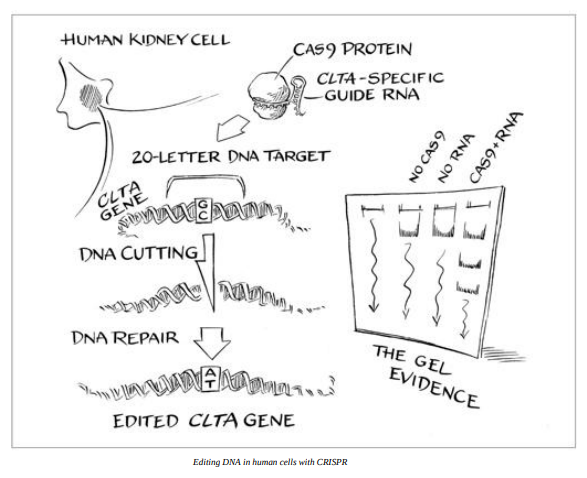 HUMAN KIDNEY CELL
CAS9 PROTEIN
CLTA-SPECIFIC
GUIDE RNA
20-LETTER DNA TARGET
CLTA
GENE
G
C
DNA CUTTING
DNA REPAIR
A
T
EDITED CLTA GENE
NO CAS9
NO RNA
CAS9+RNA
THE GEL
EVIDENCE
Editing DNA in human cells with CRISPR